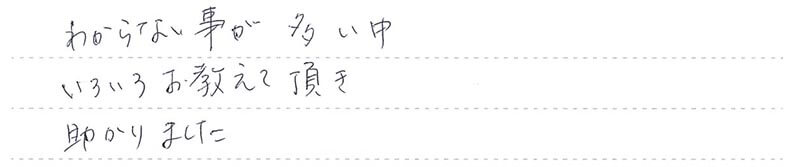 わからない事が多い中
いろいろお教えて頂き
助かりました